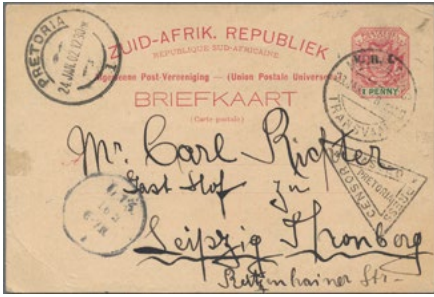 ZUID-AFRIK. REPUBLIEK
REPUBLIQUE SUD-AFRICAINE
Algemeene Post-Vereeniging — (Union Postale Universelle)
BRIEFKAART
(Carte postale)
V.R.I.
1 PENNY
PRETORIA
24 JAN.02
1
TRANSVAAL
CENSOR
PRETORIA
Mr. Carl Richter
Gast Hof zu
Leipzig Thonberg
Reitzenhainer Str-